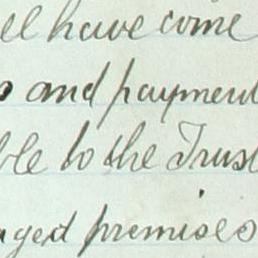 ell have come
and payment
ble to the Trust
aged premises